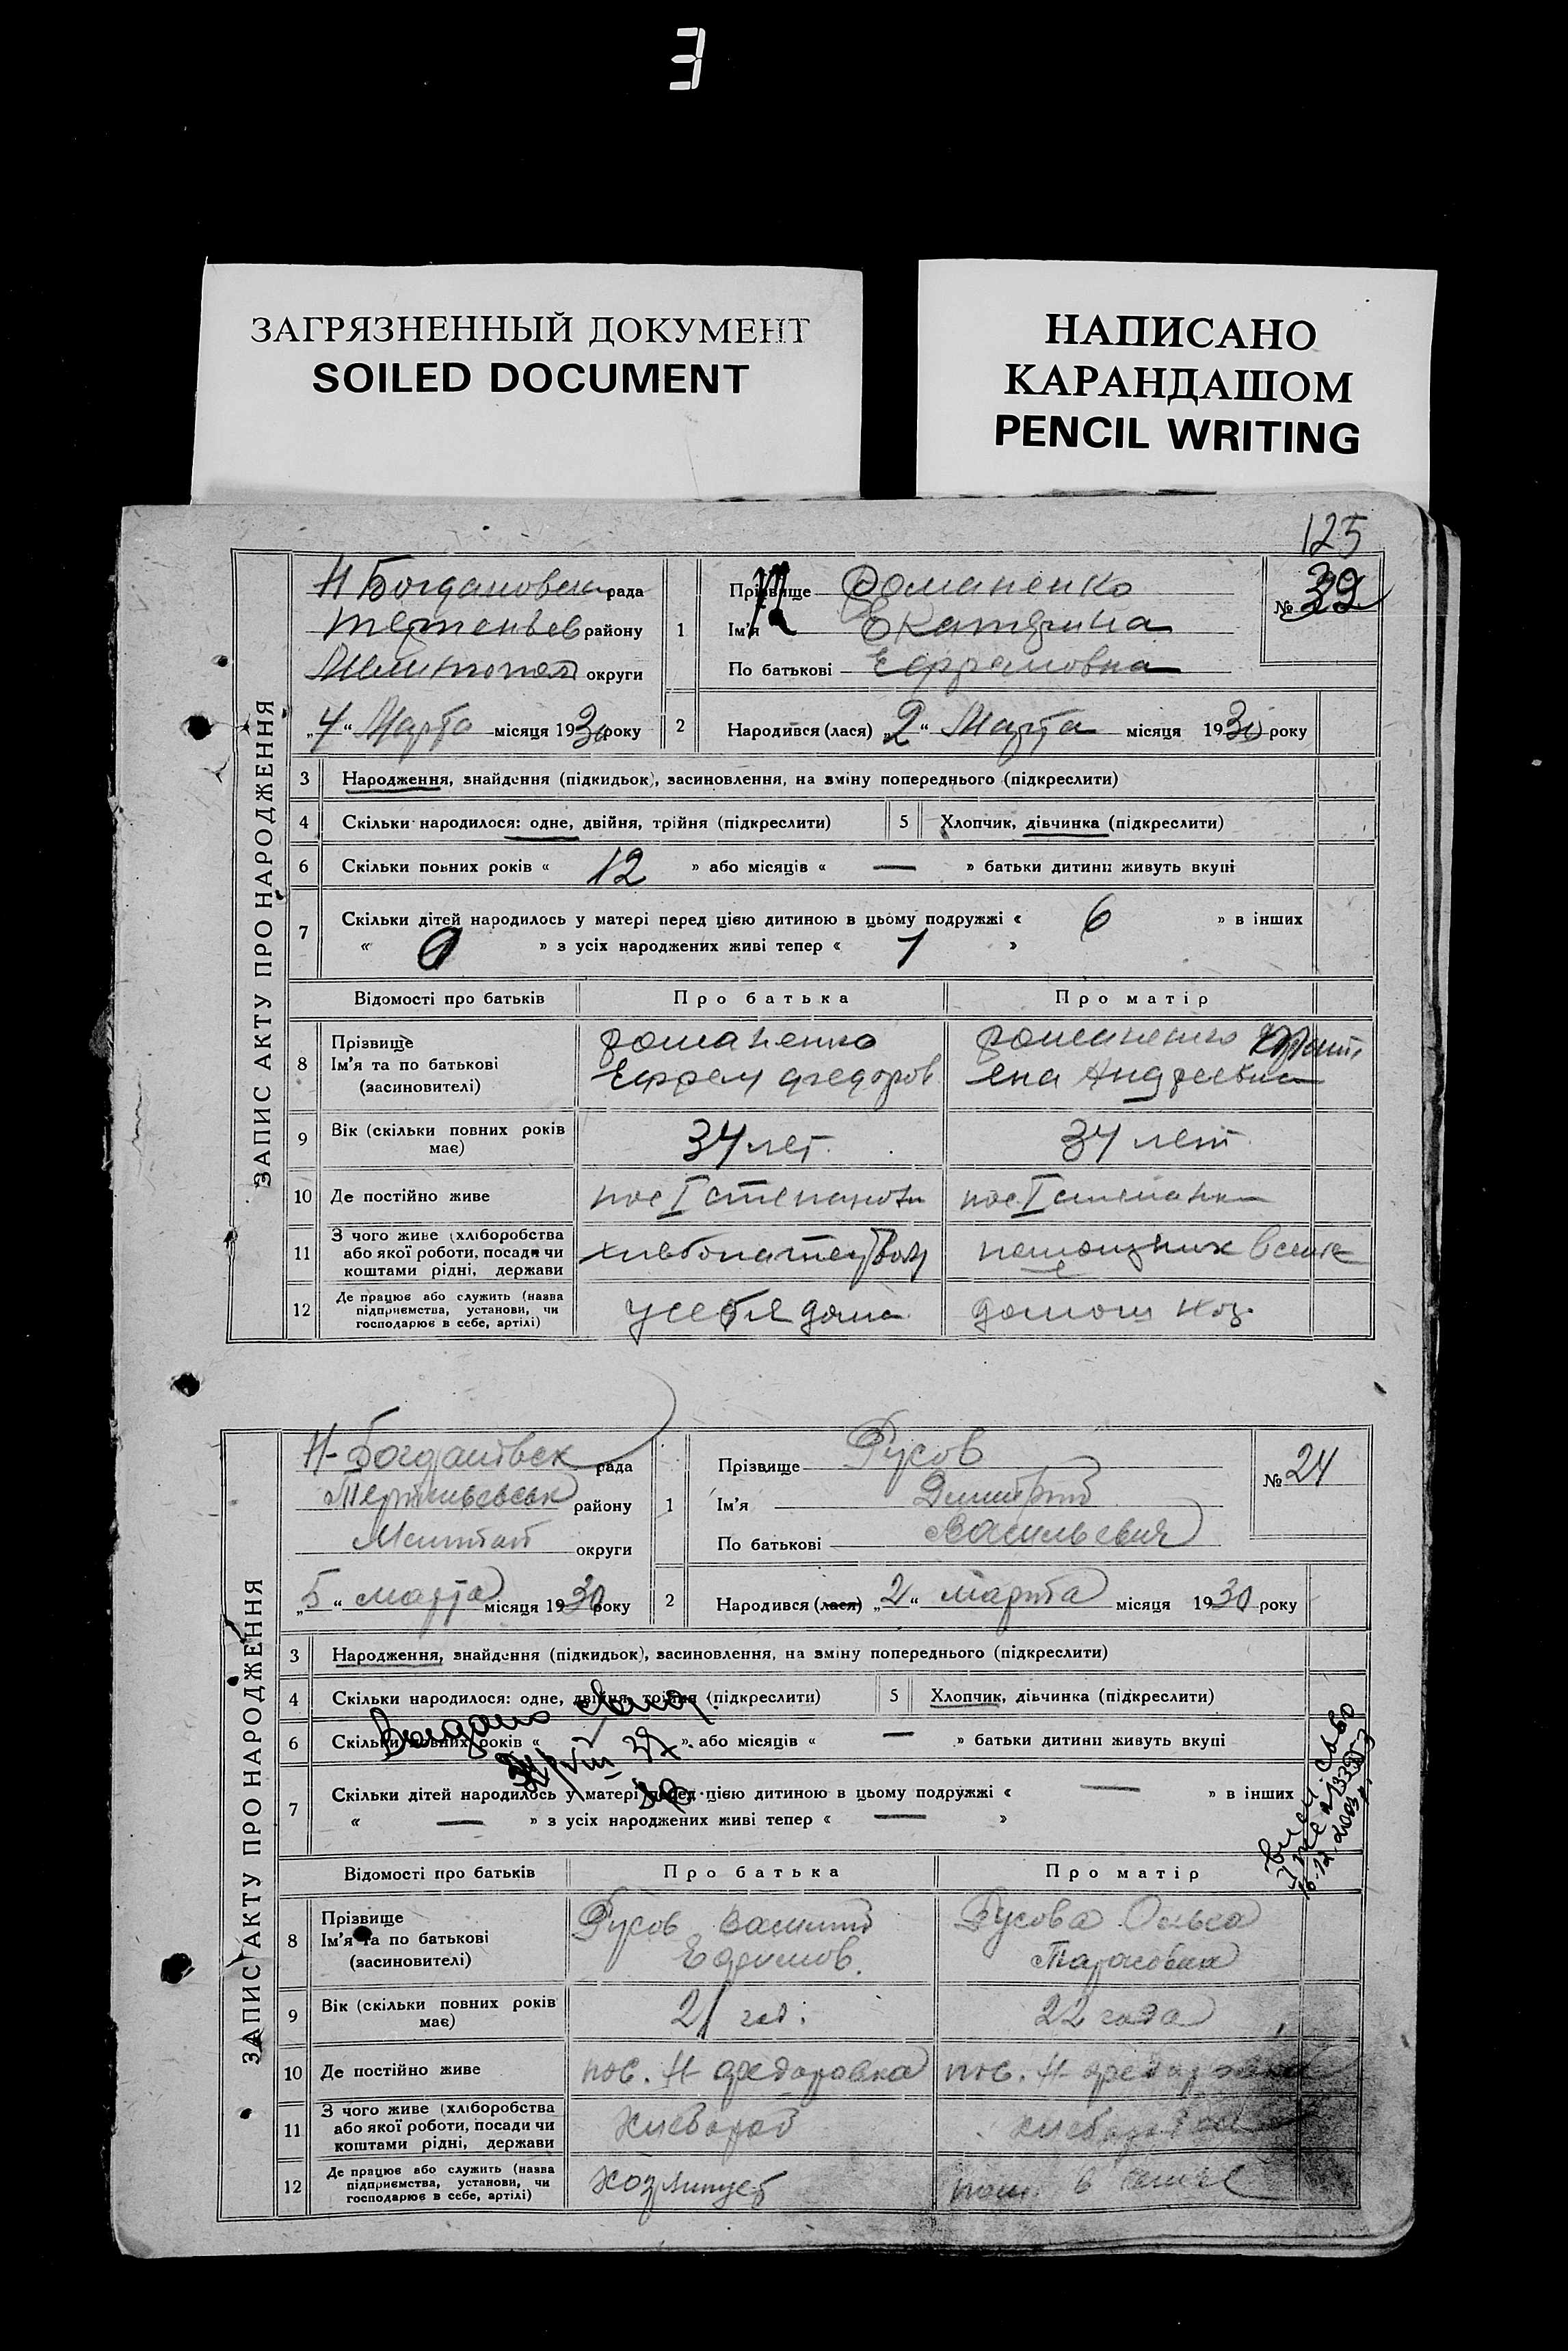 3
ЗАГРЯЗНЕННЫЙ ДОКУМЕНТ
SOILED DOCUMENT
НАПИСАНО
КАРАНДАШОМ
PENCIL WRITING
125
ЗАПИС АКТУ ПРО НАРОДЖЕННЯ
Н Богдановск рада
района району
Мелитопол округи
„4“ Марта місяця 1930 року
1 Прізвище Романенко
Ім'я Екатерина
По батькові Ефрамовна
№ 32
2 Народився (лася) „2“ Марта місяця 1930 року
3 Народження, знайдення (підкидьок), засиновлення, на зміну попереднього (підкреслити)
4 Скільки народилося: одне, двійня, трійня (підкреслити) 5 Хлопчик, дівчинка (підкреслити)
6 Скільки повних років « 12 » або місяців « — » батьки дитини живуть вкупі
7 Скільки дітей народилось у матері перед цією дитиною в цьому подружжі « 6 » в інших
« » з усіх народжених живі тепер « »
Відомості про батьків Про батька Про матір
8 Прізвище
Ім'я та по батькові
(засиновителі)
Романенко
Ефрем Федоров
Романенко
Андреевна
9 Вік (скільки повних років
має)
34 лет 34 лет
10 Де постійно живе пос I степановк пос I степанк
11 З чого живе (хліборобства
або якої роботи, посади чи
коштами рідні, держави
хлебопашеством
помощник в семье
12 Де працює або служить (назва
підприємства, установи, чи
господарює в себе, артілі)
у себя дома
домош хоз.
ЗАПИС АКТУ ПРО НАРОДЖЕННЯ
Н-Богданівск рада
району
округи
„5“ марта місяця 1930 року
1 Прізвище Русов
Ім'я Димитрий
По батькові Васильевич
№ 24
2 Народився (лася) „2“ марта місяця 1930 року
3 Народження, знайдення (підкидьок), засиновлення, на зміну попереднього (підкреслити)
4 Скільки народилося: одне, двійня, трійня (підкреслити) 5 Хлопчик, дівчинка (підкреслити)
6 Скільки повних років « » або місяців « — » батьки дитини живуть вкупі
7 Скільки дітей народилось у матері перед цією дитиною в цьому подружжі « — » в інших
« — » з усіх народжених живі тепер « — »
Відомості про батьків Про батька Про матір
8 Прізвище
Ім'я та по батькові
(засиновителі)
Русов Василий
Ефимов.
Русова Ольга
Тарасовна
9 Вік (скільки повних років
має)
21 год. 22 года
10 Де постійно живе пос. Н-Федоровка пос. Н-Федоровка
11 З чого живе (хліборобства
або якої роботи, посади чи
коштами рідні, держави
Хлебороб
12 Де працює або служить (назва
підприємства, установи, чи
господарює в себе, артілі)
пом. в семье